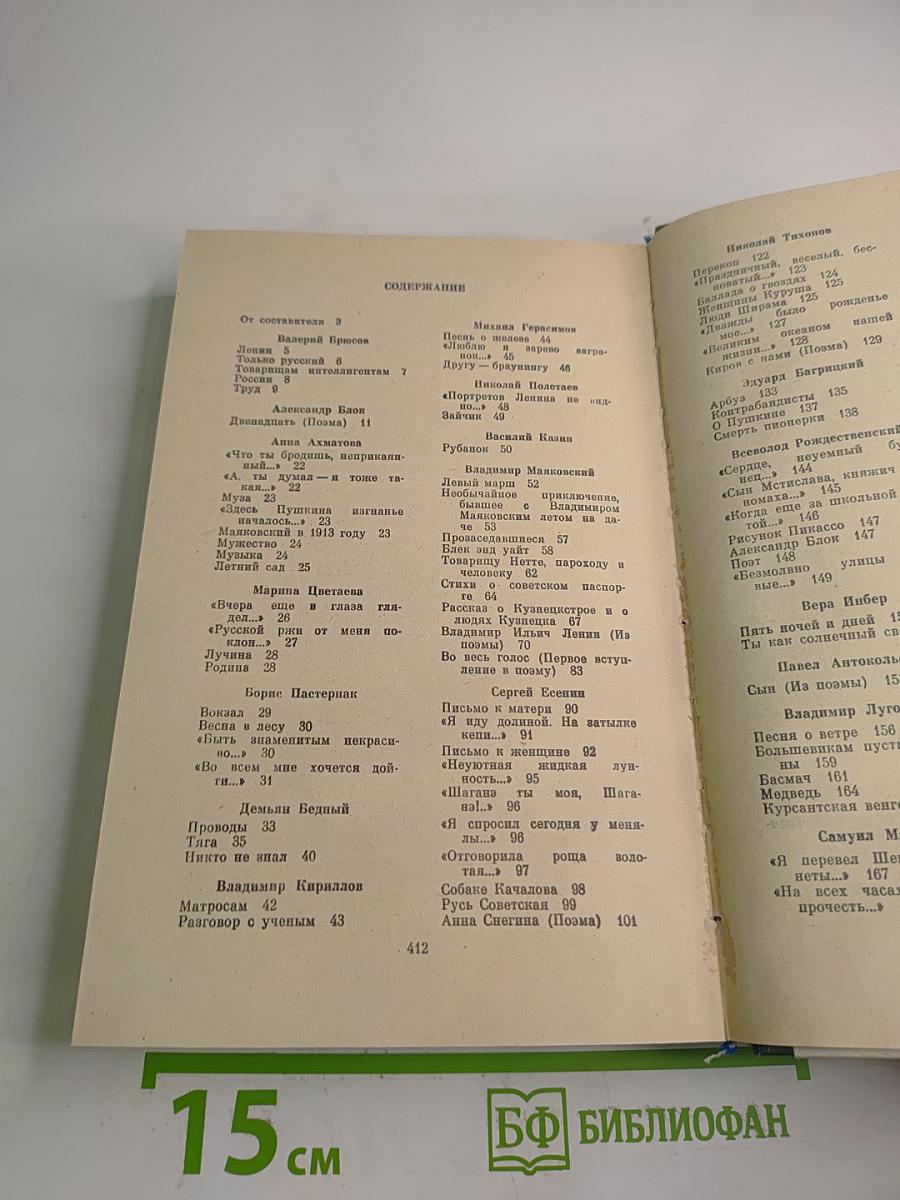 СОДЕРЖАНИЕ
От составителя 3
Валерий Брюсов
Ленин 5
Только русский 6
Товарищам интеллигентам 7
России 8
Труд 9
Александр Блок
Двенадцать (Поэма) 11
Анна Ахматова
«Что ты бродишь, неприкаян-
ный...» 22
«А, ты думал — я тоже та-
кая...» 22
Муза 23
«Здесь Пушкина изгнанье
началось...» 23
Маяковский в 1913 году 23
Мужество 24
Музыка 24
Летний сад 25
Марина Цветаева
«Вчера еще в глаза гля-
дел...» 26
«Русской ржи от меня по-
клон...» 27
Лучина 28
Родина 28
Борис Пастернак
Вокзал 29
Весна в лесу 30
«Быть знаменитым некраси-
во...» 30
«Во всем мне хочется дой-
ти...» 31
Демьян Бедный
Проводы 33
Тяга 35
Никто не знал 40
Владимир Кириллов
Матросам 42
Разговор с ученым 43
Михаил Герасимов
Песнь о железе 44
«Люблю я зарево вагра-
нок...» 45
Другу — браунингу 46
Николай Полетаев
«Портретов Ленина не вид-
но...» 48
Зайчик 49
Василий Казин
Рубанок 50
Владимир Маяковский
Левый марш 52
Необычайное приключение,
бывшее с Владимиром
Маяковским летом на да-
че 53
Прозаседавшиеся 57
Блек энд уайт 58
Товарищу Нетте, пароходу и
человеку 62
Стихи о советском паспор-
ге 64
Рассказ о Кузнецкстрое и о
людях Кузнецка 67
Владимир Ильич Ленин (Из
поэмы) 70
Во весь голос (Первое вступ-
ление в поэму) 83
Сергей Есенин
Письмо к матери 90
«Я иду долиной. На затылке
кепи...» 91
Письмо к женщине 92
«Неуютная жидкая лун-
ность...» 95
«Шаганэ ты моя, Шага-
нэ!..» 96
«Я спросил сегодня у меня-
лы...» 96
«Отговорила роща золо-
тая...» 97
Собаке Качалова 98
Русь Советская 99
Анна Снегина (Поэма) 101
412
Николай Тихонов
Перекоп 122
«Праздничный, веселый, бес-
новатый...» 123
Баллада о гвоздях 124
Женщины Куруша 125
Люди Ширама 125
«Дважды было рожденье
мое...» 127
«Великим океаном нашей
жизни...» 128
Киров с нами (Поэма) 129
Эдуард Багрицкий
Арбуз 133
Контрабандисты 135
О Пушкине 137
Смерть пионерки 138
Всеволод Рождественский
«Сердце, неуемный бу
нец...» 144
«Сын Мстислава, княжич
номаха...» 145
«Когда еще за школьной
той...» 146
Рисунок Пикассо 147
Александр Блок 147
Поэт 148
«Безмолвно улицы
вые...» 149
Вера Инбер
Пять ночей и дней 15
Ты как солнечный св
Павел Антоколь
Сын (Из поэмы) 15
Владимир Луго
Песня о ветре 156
Большевикам пусты
ны 159
Басмач 161
Медведь 164
Курсантская венге
Самуил М
«Я перевел Шек
неты...» 167
«На всех часах
прочесть...»
15 см
БФ БИБЛИОФАН